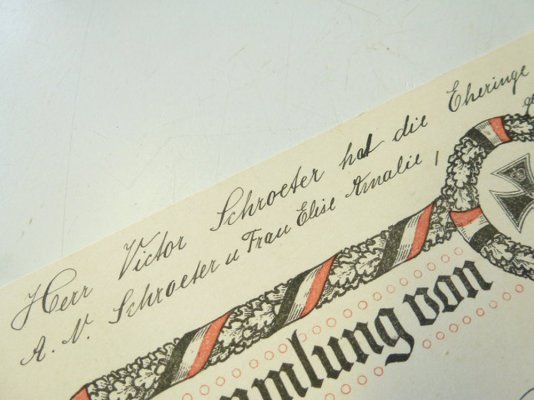 Herr Victor Schroeter hat die Eheringe
A. V. Schroeter u Frau Elise Amalie
mmlung von